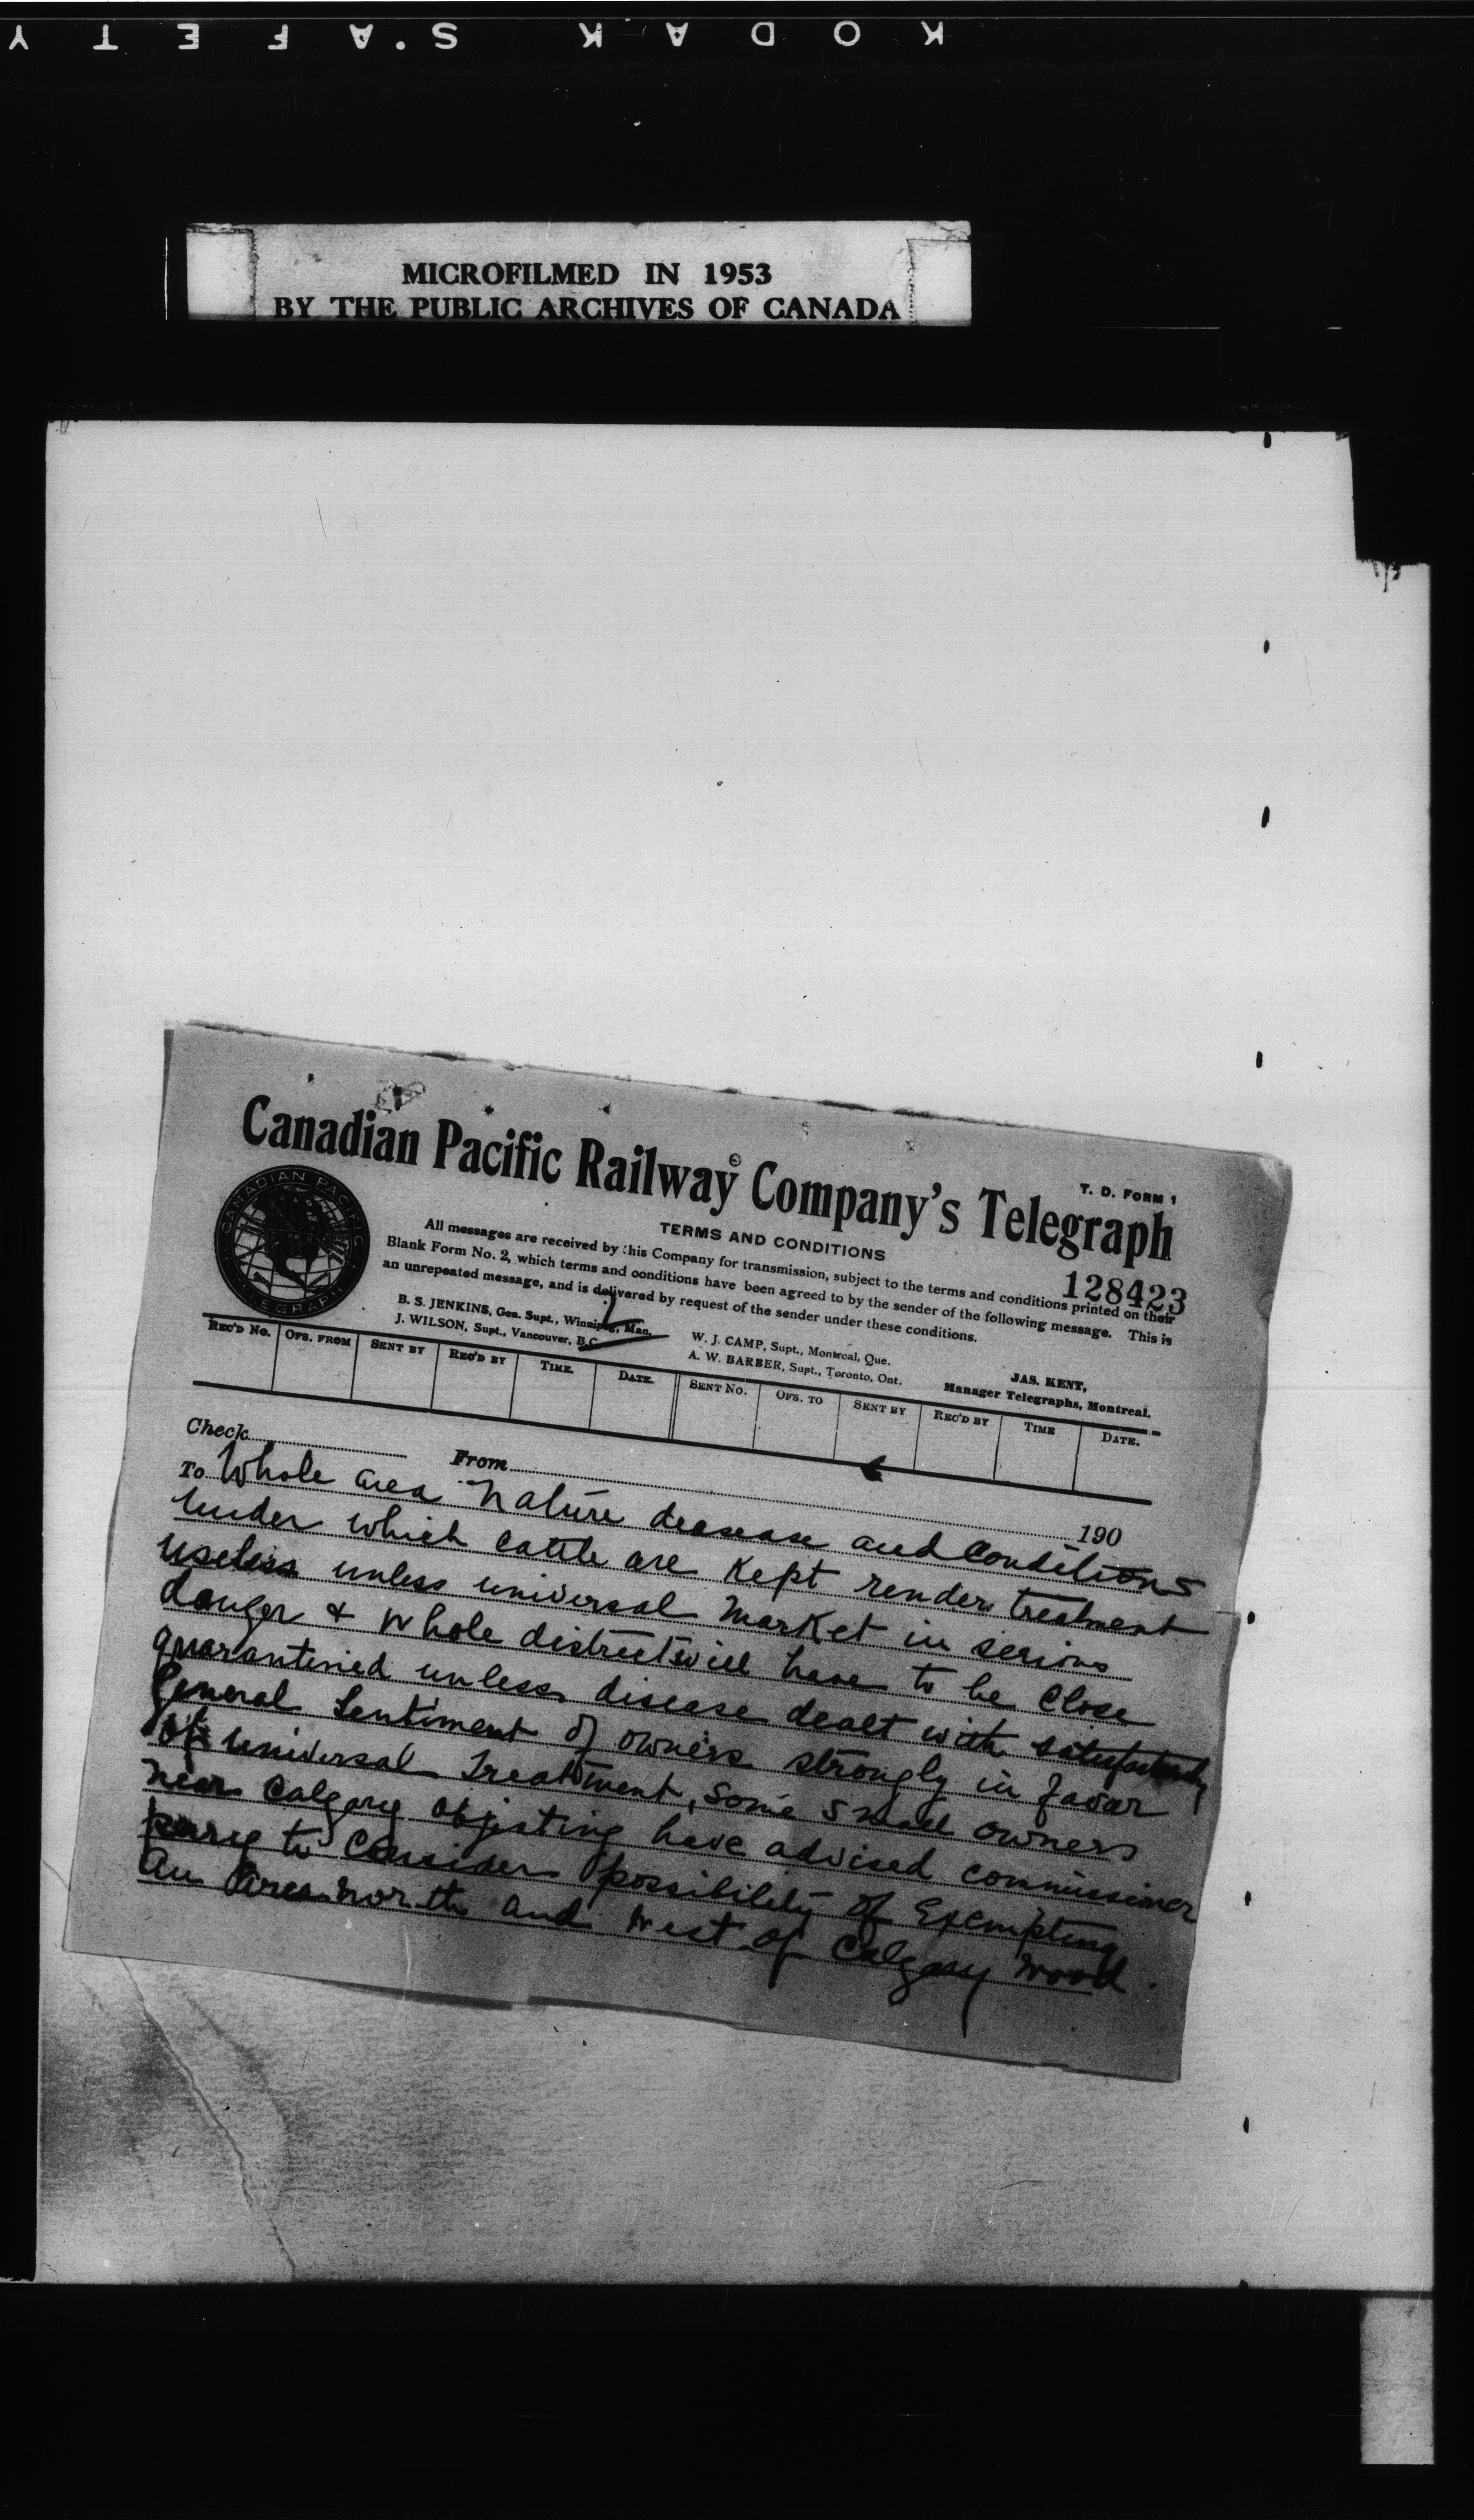 KODAK S'AFETY
MICROFILMED IN 1953
BY THE PUBLIC ARCHIVES OF CANADA
T. D. FORM 1
Canadian Pacific Railway Company's Telegraph
CANADIAN PACIFIC
TELEGRAPH
TERMS AND CONDITIONS
All messages are received by this Company for transmission, subject to the terms and conditions printed on their
Blank Form No. 2, which terms and conditions have been agreed to by the sender of the following message. This is
an unrepeated message, and is delivered by request of the sender under these conditions.
128423
B. S. JENKINS, Gen. Supt., Winnipeg, Man.
J. WILSON, Supt., Vancouver, B.C.
W. J. CAMP, Supt., Montreal, Que.
A. W. BARBER, Supt., Toronto, Ont.
JAS. KENT,
Manager Telegraphs, Montreal.
REC'D No. OFS. FROM SENT BY REC'D BY TIME. DATE. SENT No. OFS. TO SENT BY REC'D BY TIME DATE.
Check From 190
To Whole area nature desease and Conditions
under which cattle are Kept render treatment
useless unless universal market in serious
danger & whole district will have to be Close
quarantined unless disease dealt with satisfactorily
General Sentiment of owners strongly in favor
of universal Treatment, Some small owners
near Calgary objecting have advised commissioner
perry to Consider possibility of Exempting
an area north and west of Calgary Wood.